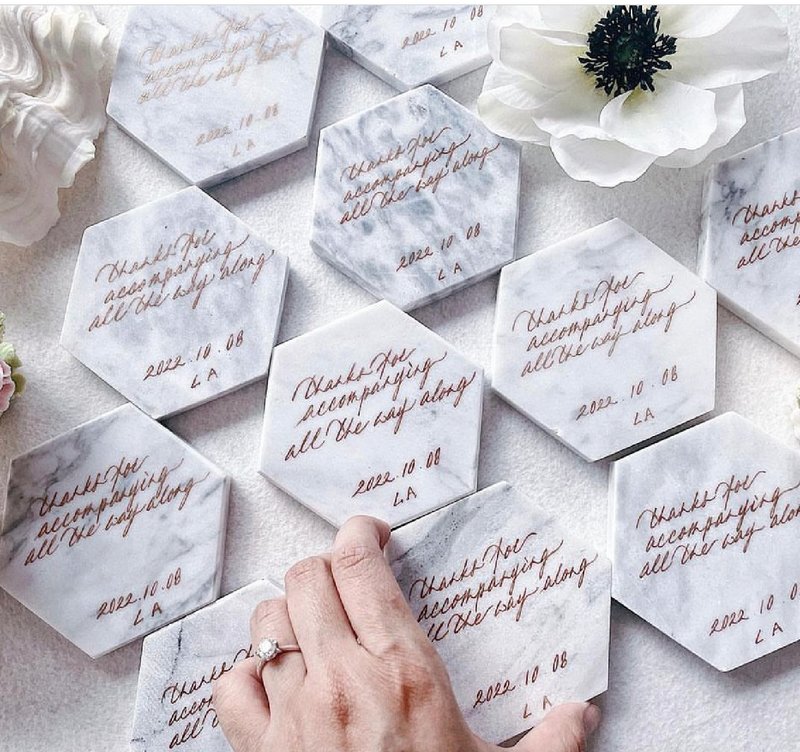 thanks for
accompanying
all the way along
2022.10.08
LA
2022.10.08
LA
thanks for
accompanying
all the way along
2022.10.08
LA
thanks
all the
thanks for
accompanying
all the way along
2022.10.08
LA
thanks for
accompanying
all the way along
2022.10.08
LA
thanks for
accompanying
all the way along
2022.10.08
LA
thanks for
accompanying
all the way along
2022.10.08
LA
thanks for
accompanying
all the way along
2022.10.0
LA
thanks for
accompanying
all the way along
2022.10.08
LA
thanks
all